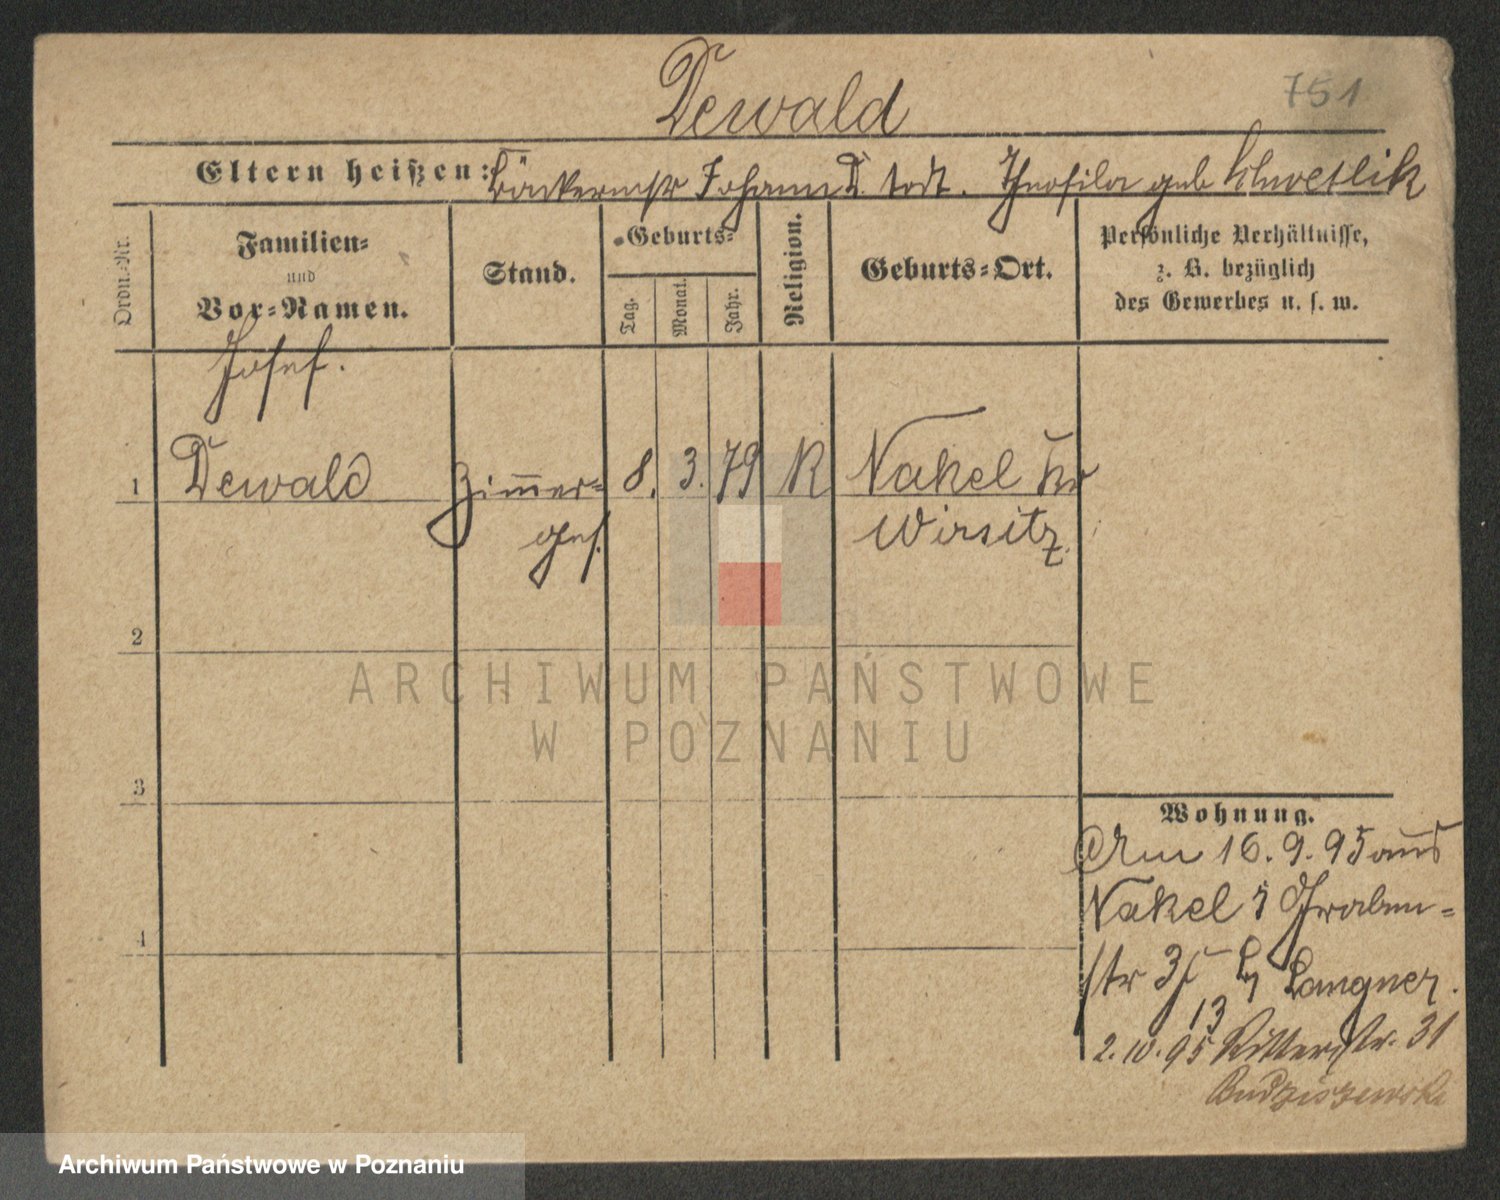 Dewald
751
Eltern heißen: Bäckermstr Johann D. todt. Theofila geb Chwetlik
Ordn.-Nr.
Familien-
und
Vor-Namen.
Stand.
Geburts-
Tag.
Monat.
Jahr.
Religion.
Geburts-Ort.
Persönliche Verhältnisse,
z. B. bezüglich
des Gewerbes u. s. w.
Josef.
1 Dewald Zimmer- 8. 3. 79 K Nakel Kr
ges. Wirsitz.
2
3
4
Wohnung.
Am 16.9.95 aus
Nakel Graben-
str 3 b/ Langner.
13
2.10.95 Ritterstr. 31
Budziszewski
ARCHIWUM PAŃSTWOWE
W POZNANIU
Archiwum Państwowe w Poznaniu